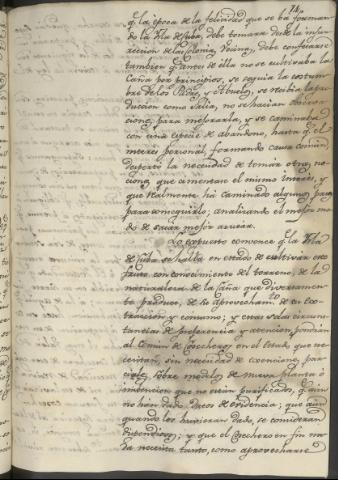 14
q.e la época de la felicidad que se ha forman-
do la Ysla de Cuba, debe tomarse desde la insu-
rrección del Guarico, debe confesarse
tambien q.e antes de ella no se cultivaba la
Caña por principios, se seguia la costum-
bre de los Padres, y Abuelos, se recibia la pro-
duccion como salia, no se hacian observa-
ciones para mejorarla, y se caminaba
con cierta especie de abandono, hasta q.e el
interes personal, formando causa comun
despertó la necesidad de tomar otras no-
ciones que aumentase el mismo interés, y
que realmente ha caminado algunos pasos
para conseguirlo, analizando el mejor mo-
do de sacar mejor azucar.
Lo expuesto convence q.e la Ysla
de Cuba se halla en estado de cultivar este
fruto con conocimiento del terreno, de la
naturaleza de la Caña que diversamen-
te produce, de su aprovecham.to de ex-
traccion y consumo; y estas solas circuns-
tancias de preferencia y atencion pondrán
al Comun de Cosecheros en el estado, que ne-
cesitan, sin necesidad de exenciones par-
ciales, sobre modelos de nueva planta ó
imbencion que no están purificados, q.e aun
no han dado datos de evidencia; que aun
quando los hubieran dado, se consideran
dispendiosos; y que el Cosechero en fin no
ha necesita tanto, como aprovecharse